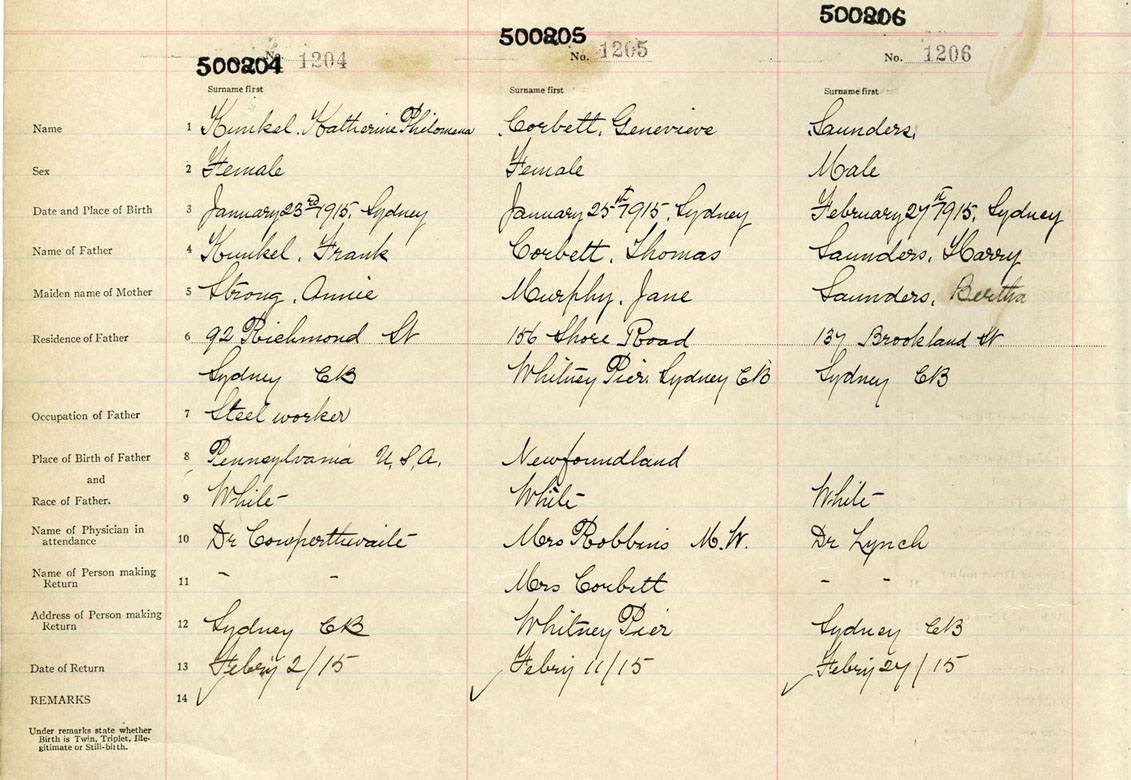 500204 No. 1204 500205 No. 1205 500206 No. 1206
Surname first Surname first Surname first
Name 1 Kunkel, Katherine Philomena Corbett, Genevieve Saunders,
Sex 2 Female Female Male
Date and Place of Birth 3 January 23rd 1915, Sydney January 25th 1915, Sydney February 27th 1915, Sydney
Name of Father 4 Kunkel, Frank Corbett, Thomas Saunders, Harry
Maiden name of Mother 5 Strong, Annie Murphy, Jane Saunders, Bertha
Residence of Father 6 92 Richmond St 156 Shore Road 137 Brookland St
Sydney CB Whitney Pier, Sydney CB Sydney CB
Occupation of Father 7 Steel worker
Place of Birth of Father 8 Pennsylvania U.S.A. Newfoundland
and
Race of Father. 9 White White White
Name of Physician in
attendance 10 Dr Cowperthwaite Mrs Robbins M.W. Dr Lynch
Name of Person making
Return 11 - - Mrs Corbett - -
Address of Person making
Return 12 Sydney CB Whitney Pier Sydney CB
Date of Return 13 Febry 2/15 Febry 11/15 Febry 27/15
REMARKS 14
Under remarks state whether
Birth is Twin, Triplet, Ille-
gitimate or Still-birth.